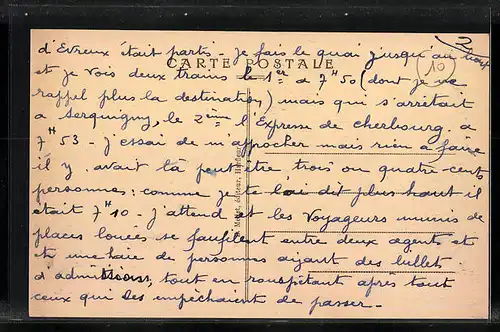 d'Evreux était parti - je fais le quai jusqu'au
CARTE POSTALE
et je vois deux trains le 1er a 7H50 (dont je ne
rappel plus la destination) mais qui s'arrêtait
a Serquigny, le 2ème l'Expresse de cherbourg a
7H53 - j'essai de m'approcher mais rien a faire
il y avait la peut être trois ou quatre cents
personnes : comme je te lai dit plus haut il
était 7H10 - j'attend et les voyageurs munis de
places louées se faufilent entre deux agents et
une haie de personnes aiyant des billets
d'admission, tout en rouspétant après tout
ceux qui les empêchaient de passer -
10